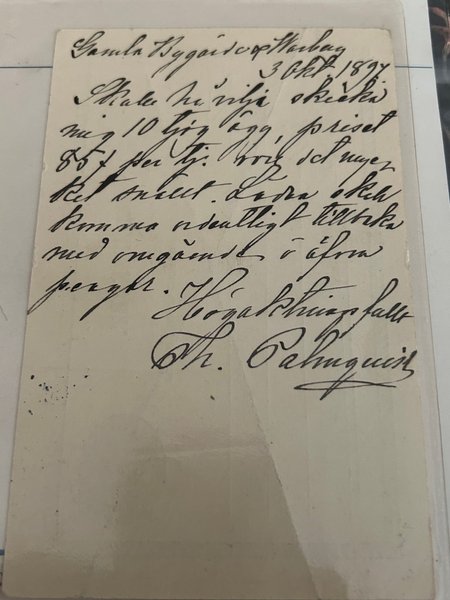 Gamla Bygården Warberg
3 Okt. 1897
Skulle Ni vilja skicka
mig 10 tjög ägg, priset
85 f per tj. vore det myc
ket snällt. Lådan skall
komma ordentligt tillbaka
med omgående o äfven
pengar.
Högaktningsfullt
Th. Palmquist